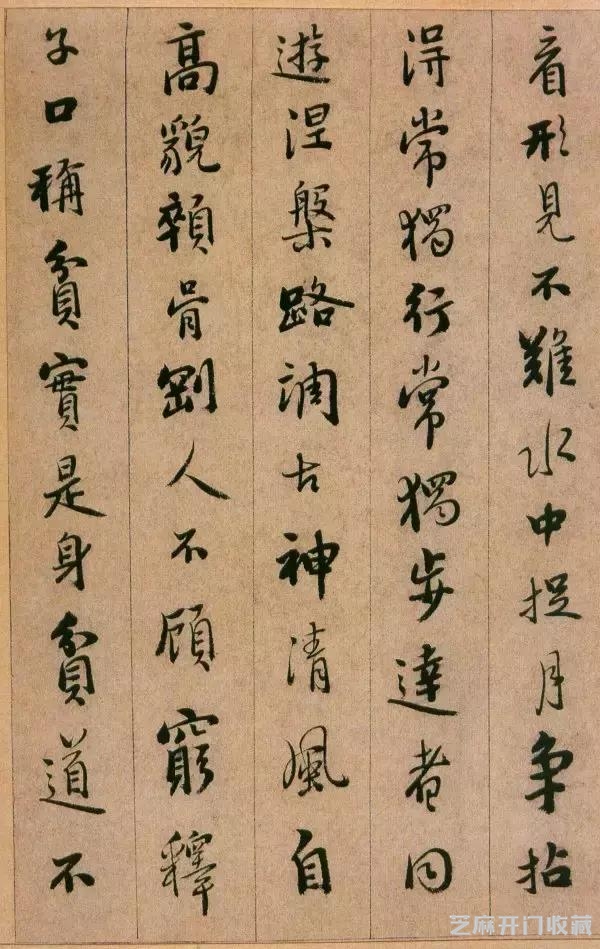 看形見不難水中捉月爭拈
得常獨行常獨步達者同
遊涅槃路調古神清風自
高貌顇骨剛人不顧窮釋
子口稱貧實是身貧道不
芝麻开门收藏